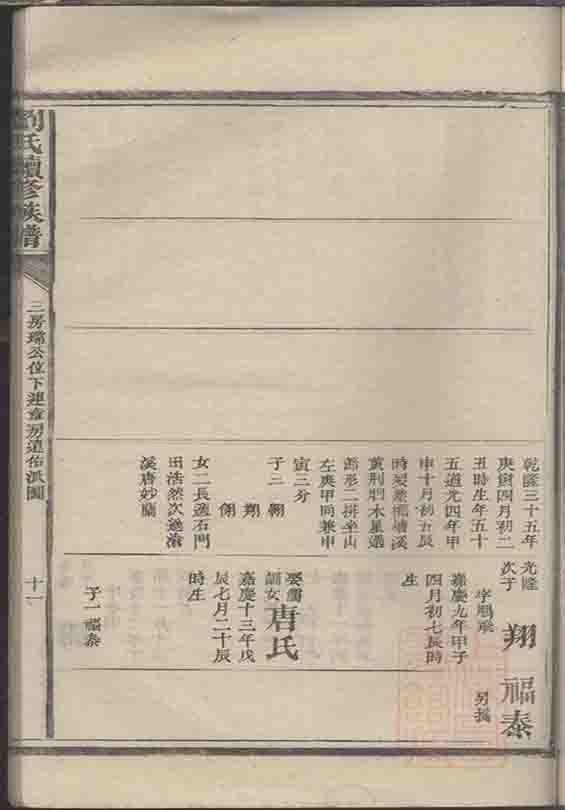 劉氏續修族譜
三房
公位下
十一
乾隆三十五年
庚寅四月初二
丑時生年五十
五道光四年甲
申十月初五辰
時歿葬
黃荊
木星
郎形二排坐山
左庚甲同兼申
寅三分
子三 翱
翔
翎
女二長適石門
田浩然次適
溪唐妙
光隆
次子
翔
字
嘉慶九年甲子
四月初七辰時
生
娶
女
唐氏
嘉慶十三年戊
辰七月二十辰
時生
子一福泰
福泰
另